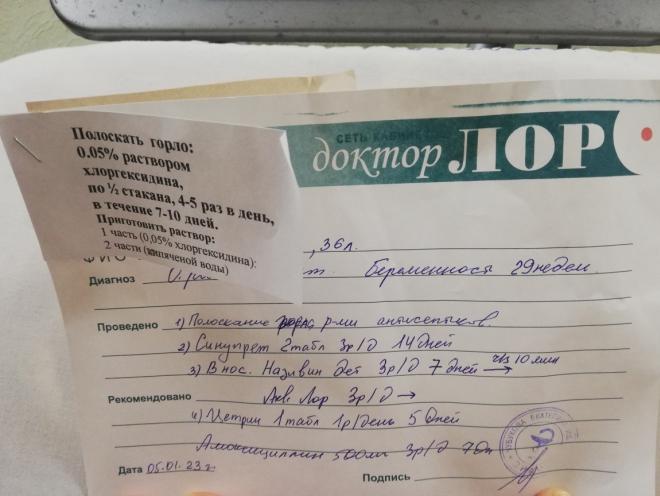 Полоскать горло:
0.05% раствором
хлоргексидина,
по ½ стакана, 4-5 раз в день,
в течение 7-10 дней.
Приготовить раствор:
1 часть (0,05% хлоргексидина):
2 части (кипяченой воды)
СЕТЬ КАБИНЕ
доктор ЛОР
, 36 л.
Диагноз Беременность 29 недел.
Проведено 1) Полоскание р-ми антисептиков.
2) Синупрет 2 табл 3р/д 14 дней
3) В нос. Називин дет 3р/д 7 дней → чз 10 мин
Рекомендовано Акв. Лор 3р/д →
4) Цетрин 1 табл 1р/день 5 дней
Амоксициллин 500 3р/д
Дата 05.01.23г
Подпись